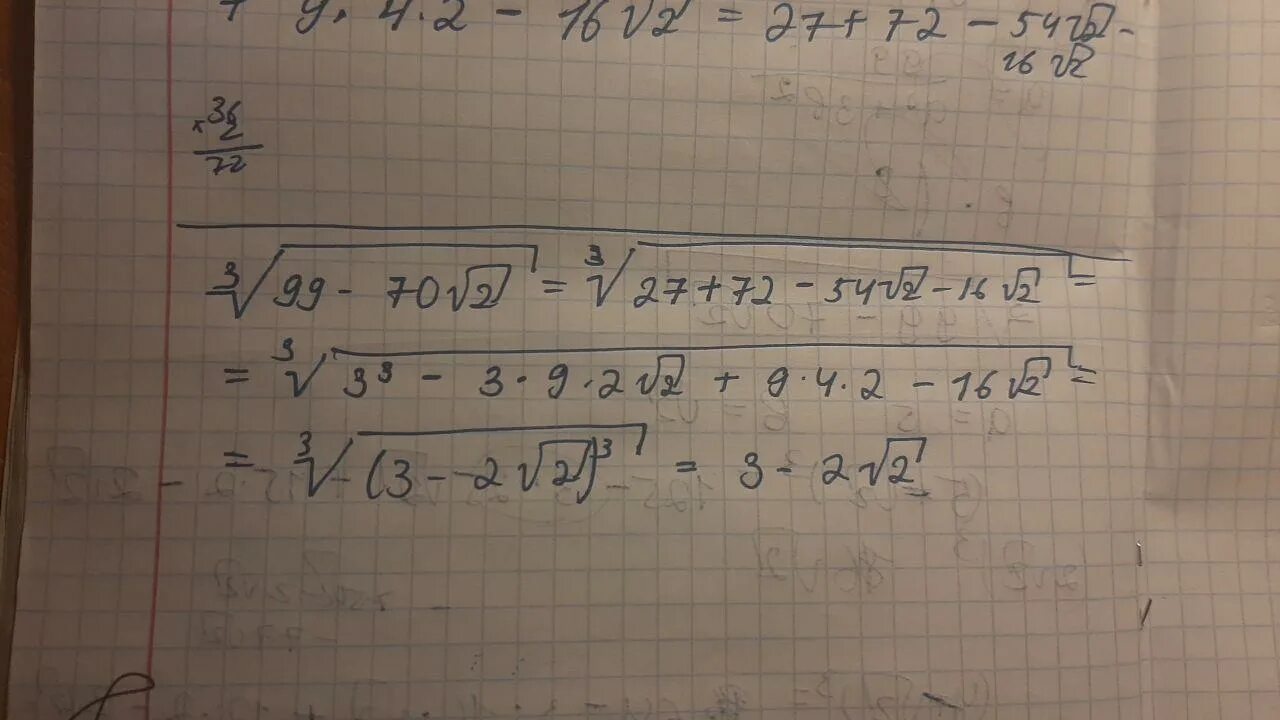 + 9·4·2 - 16√2 = 27 + 72 - 54√2 -
16√2
36
×2
72
∛(99 - 70√2) = ∛(27 + 72 - 54√2 - 16√2) =
= ∛(3³ - 3·9·2√2 + 9·4·2 - 16√2) =
= ∛((3 - 2√2)³) = 3 - 2√2